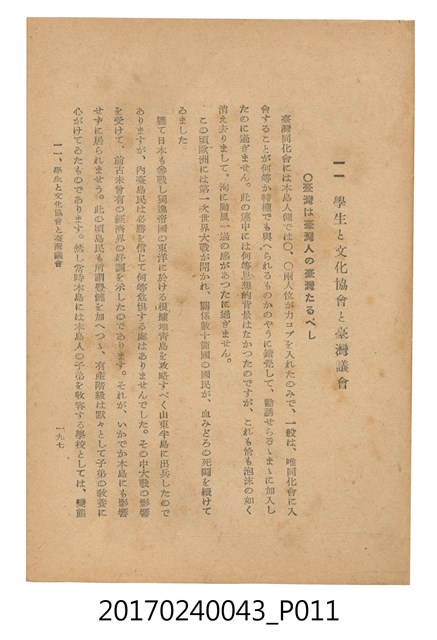 一一　學生と文化協會と臺灣議會
〇臺灣は臺灣人の臺灣たるべし
臺灣同化會には本島人側では〇、〇兩人位が力コブを入れたのみで、一般は、唯同化會に入
會することが何等か特權でも與へられるものかのやうに錯覺して、勸誘せらるゝまゝに加入し
たのに過ぎません。此の連中には何等思想的背景はなかつたのですが、これも恰も泡沫の如く
消え去りまして、洵に颱風一過の感があつたに過ぎません。
この頃歐洲には第一次世界大戰が開かれ、關係數十箇國の國民が、血みどろの死鬪を續けて
ゐました
軈て日本も參戰し獨逸帝國の東洋に於ける根據地靑島を攻略すべく山東半島に出兵したので
ありますが、內臺島民は必勝を信じて何等危惧する處はありませんでした。その中大戰の影響
を受けて、前古未曾有の經濟界の好調を示したのであります。それが、いかでか本島にも影響
せずに居られませう。此の頃島民も所謂豐饒を加へつゝ、有產階級は默々として子弟の敎養に
心がけてゐたものであります。然し當時本島には本島人の子弟を收容する學校としては、變態
一一、學生と文化協會と臺灣議會
一九七
20170240043_P011